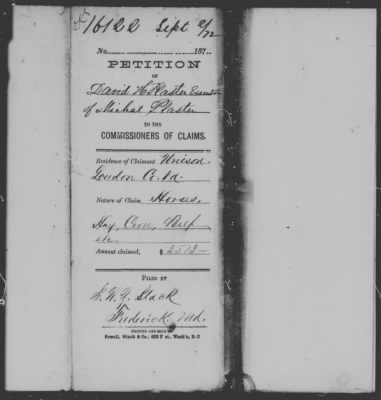 16122 Sept 2/72
No. 187
PETITION
OF
David H Plaster Executor
of Michael Plaster
TO THE
COMMISSIONERS OF CLAIMS.
Residence of Claimant Unison
Louden Co.
Nature of Claim Horses,
Hay, Corn, Beef
etc.
Amount claimed, $ 2513
FILED BY
Stack
Frederick, Md.
PRINTED AND SOLD BY
Powell, Ginck & Co., 632 F st., Wash'n, D.C